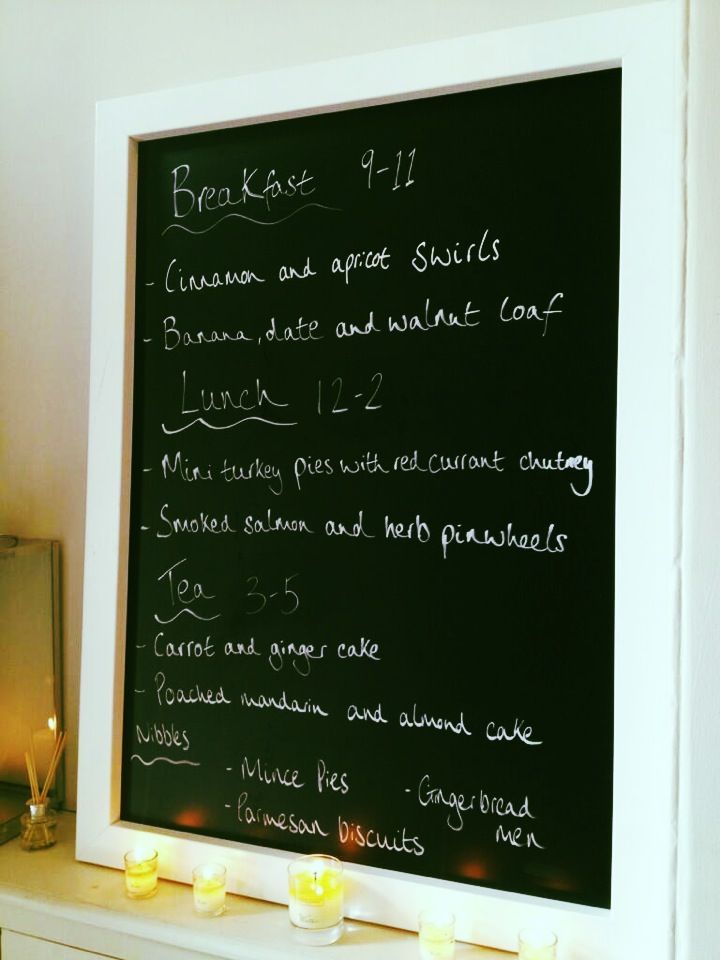 Breakfast 9-11
- Cinnamon and apricot swirls
- Banana, date and walnut loaf
Lunch 12-2
- Mini turkey pies with redcurrant chutney
- Smoked salmon and herb pinwheels
Tea 3-5
- Carrot and ginger cake
- Poached mandarin and almond cake
Nibbles
- Mince Pies
- Parmesan biscuits
- Gingerbread
men